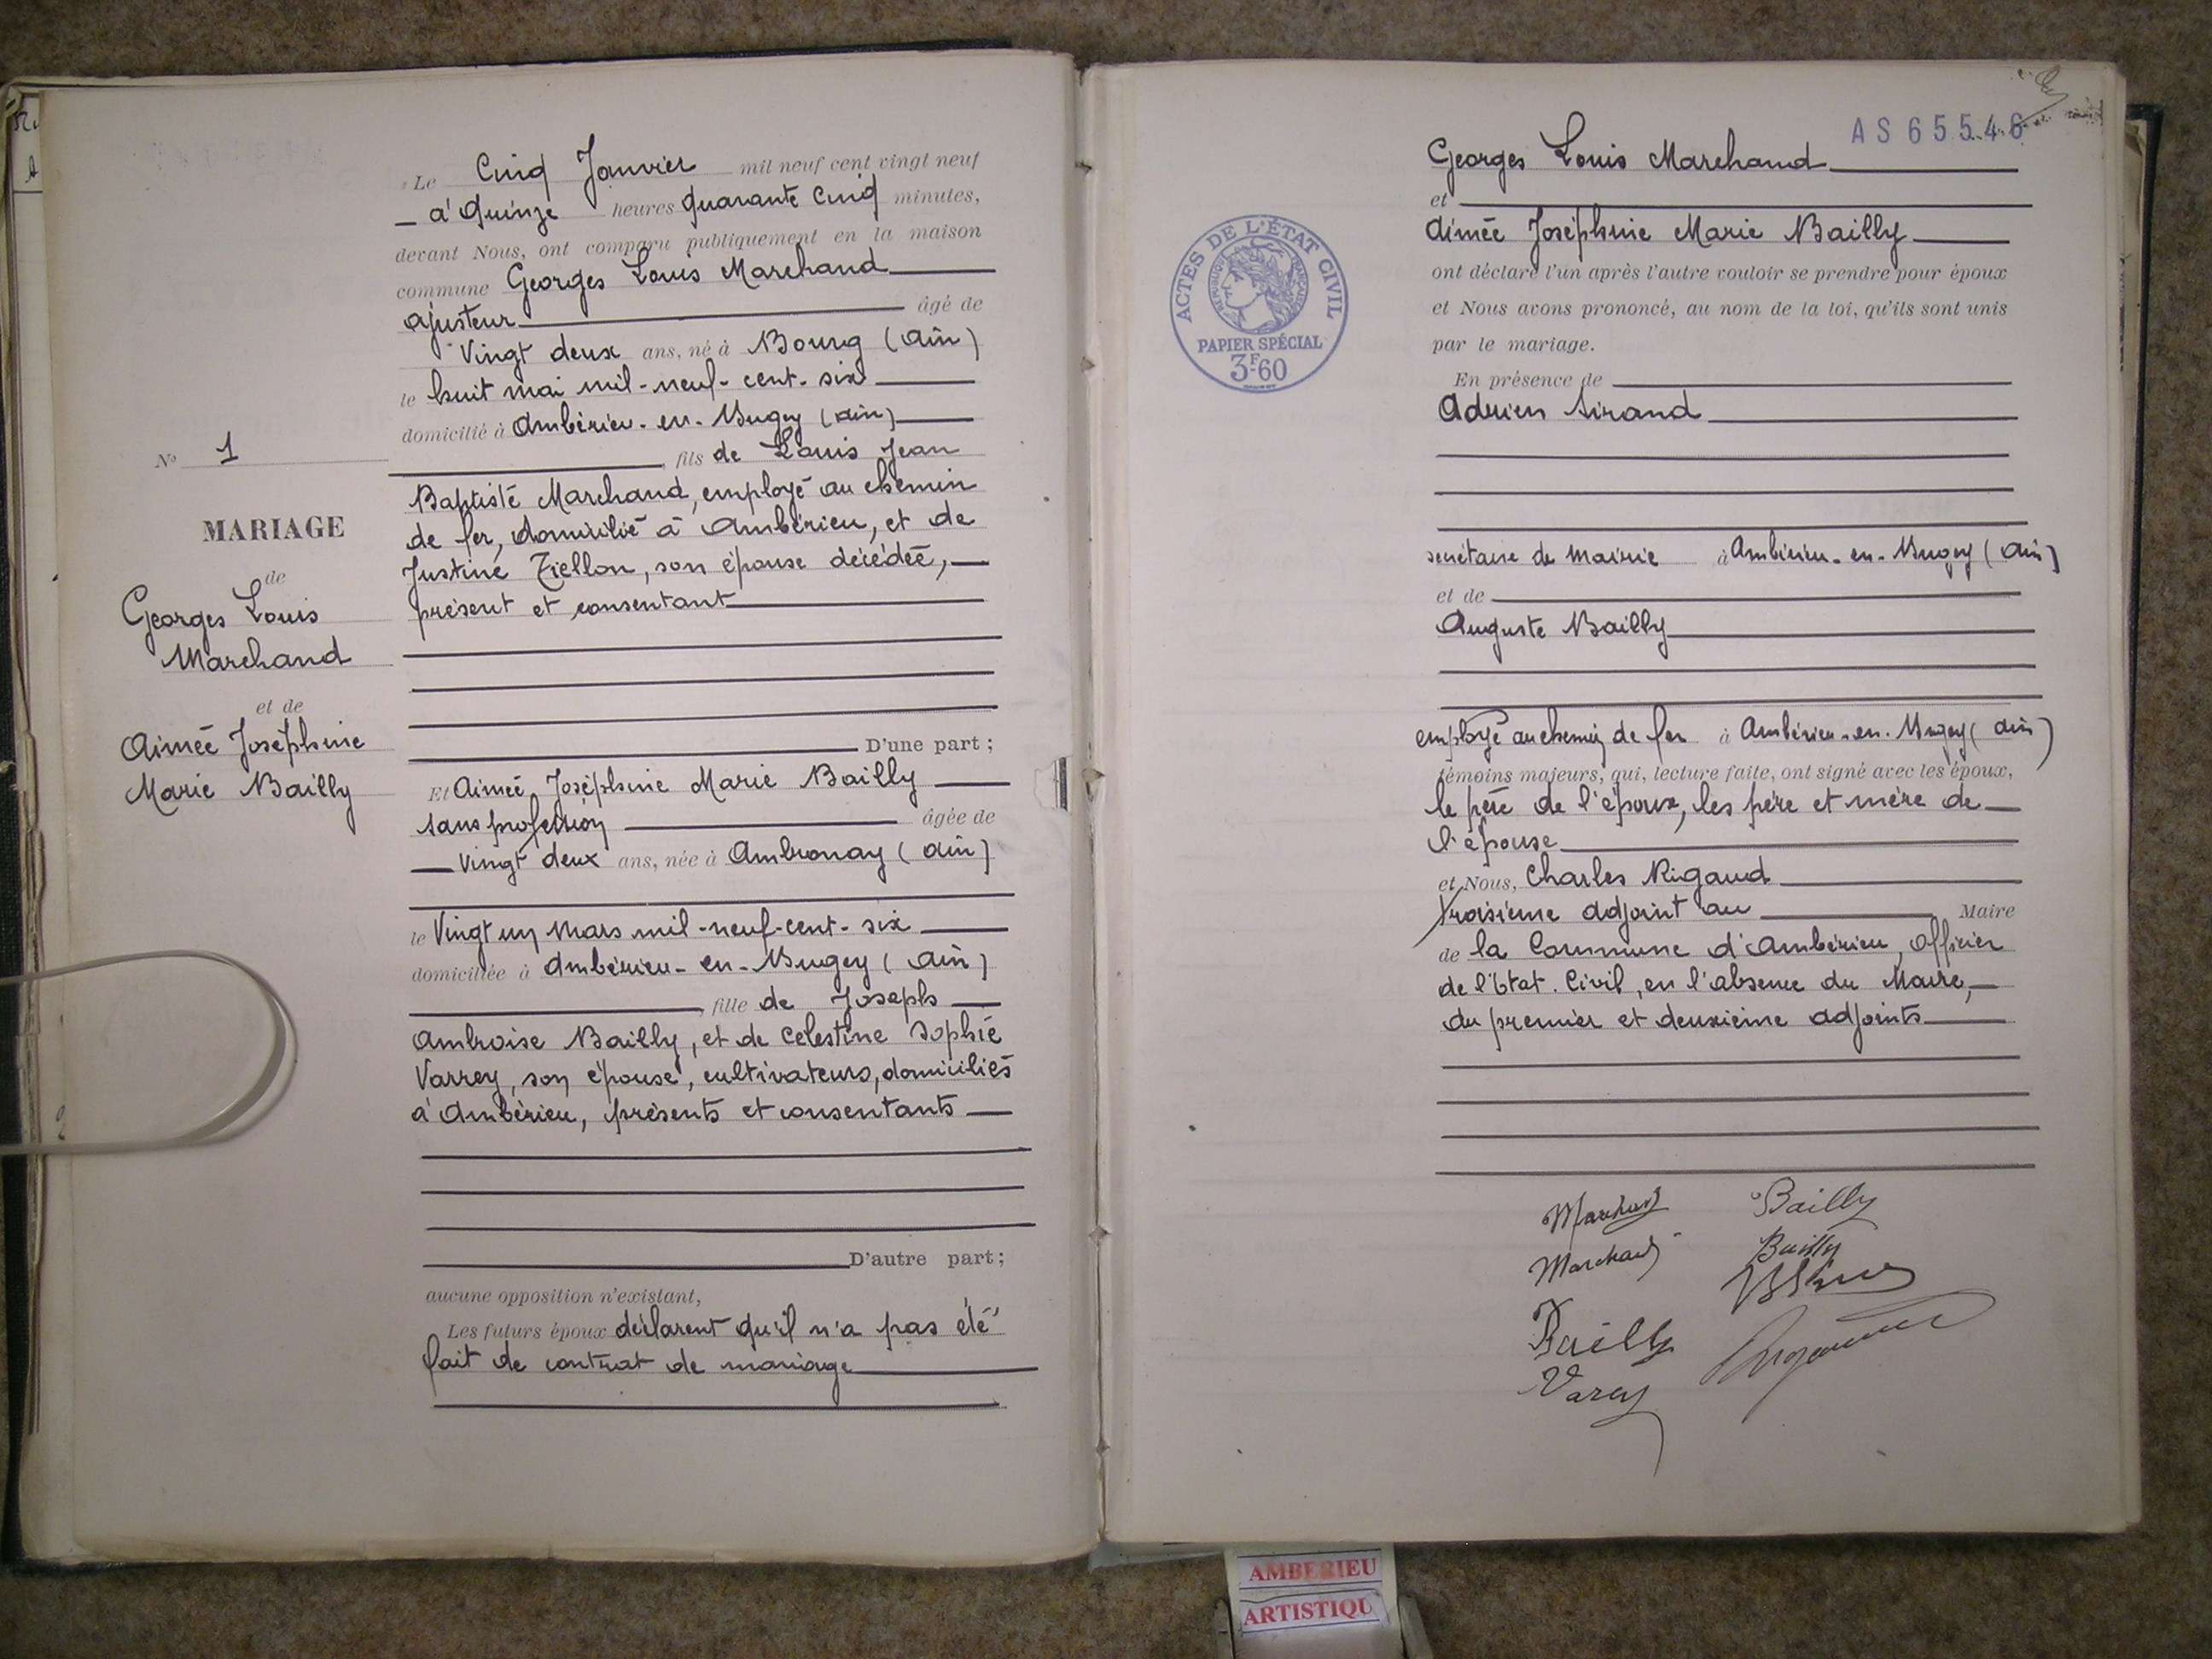 N° 1
MARIAGE
de
Georges Louis
Marchand
et de
Aimée Joséphine
Marie Bailly
Le Cinq Janvier mil neuf cent vingt neuf
à Quinze heures Quarante Cinq minutes,
devant Nous, ont comparu publiquement en la maison
commune Georges Louis Marchand
ajusteur âgé de
Vingt deux ans, né à Bourg (Ain)
le huit mai mil-neuf-cent-six
domicilié à Ambérieu-en-Bugey (Ain)
, fils de Louis Jean
Baptiste Marchand, employé au chemin
de fer, domicilié à Ambérieu, et de
Justine Ziellon, son épouse décédée,
présent et consentant
D'une part ;
Et Aimée Joséphine Marie Bailly
sans profession âgée de
Vingt deux ans, née à Ambronay (Ain)
le Vingt un Mars mil-neuf-cent-six
domiciliée à Ambérieu-en-Bugey (Ain)
, fille de Joseph
Ambroise Bailly, et de Celestine Sophie
Varrey, son épouse, cultivateurs, domiciliés
à Ambérieu, présents et consentants
D'autre part ;
aucune opposition n'existant,
Les futurs époux déclarent qu'il n'a pas été
fait de contrat de mariage
AS 65546
Georges Louis Marchand
et
Aimée Joséphine Marie Bailly
ont déclaré l'un après l'autre vouloir se prendre pour époux
et Nous avons prononcé, au nom de la loi, qu'ils sont unis
par le mariage.
En présence de
Adrien Sirand
secrétaire de Mairie à Ambérieu-en-Bugey (Ain)
et de
Auguste Bailly
employé au chemin de fer à Ambérieu-en-Bugey (Ain)
témoins majeurs, qui, lecture faite, ont signé avec les époux,
le père de l'époux, les père et mère de
l'épouse
et Nous, Charles Rigaud
troisième adjoint au Maire
de la Commune d'Ambérieu, Officier
de l'Etat-Civil, en l'absence du Maire,
du premier et deuxième adjoints
Marchand Bailly
Marchand Bailly
Bailly
Varey
ACTES DE L'ÉTAT CIVIL
RÉPUBLIQUE FRANÇAISE
PAPIER SPÉCIAL
3F60
AMBERIEU
ARTISTIQU